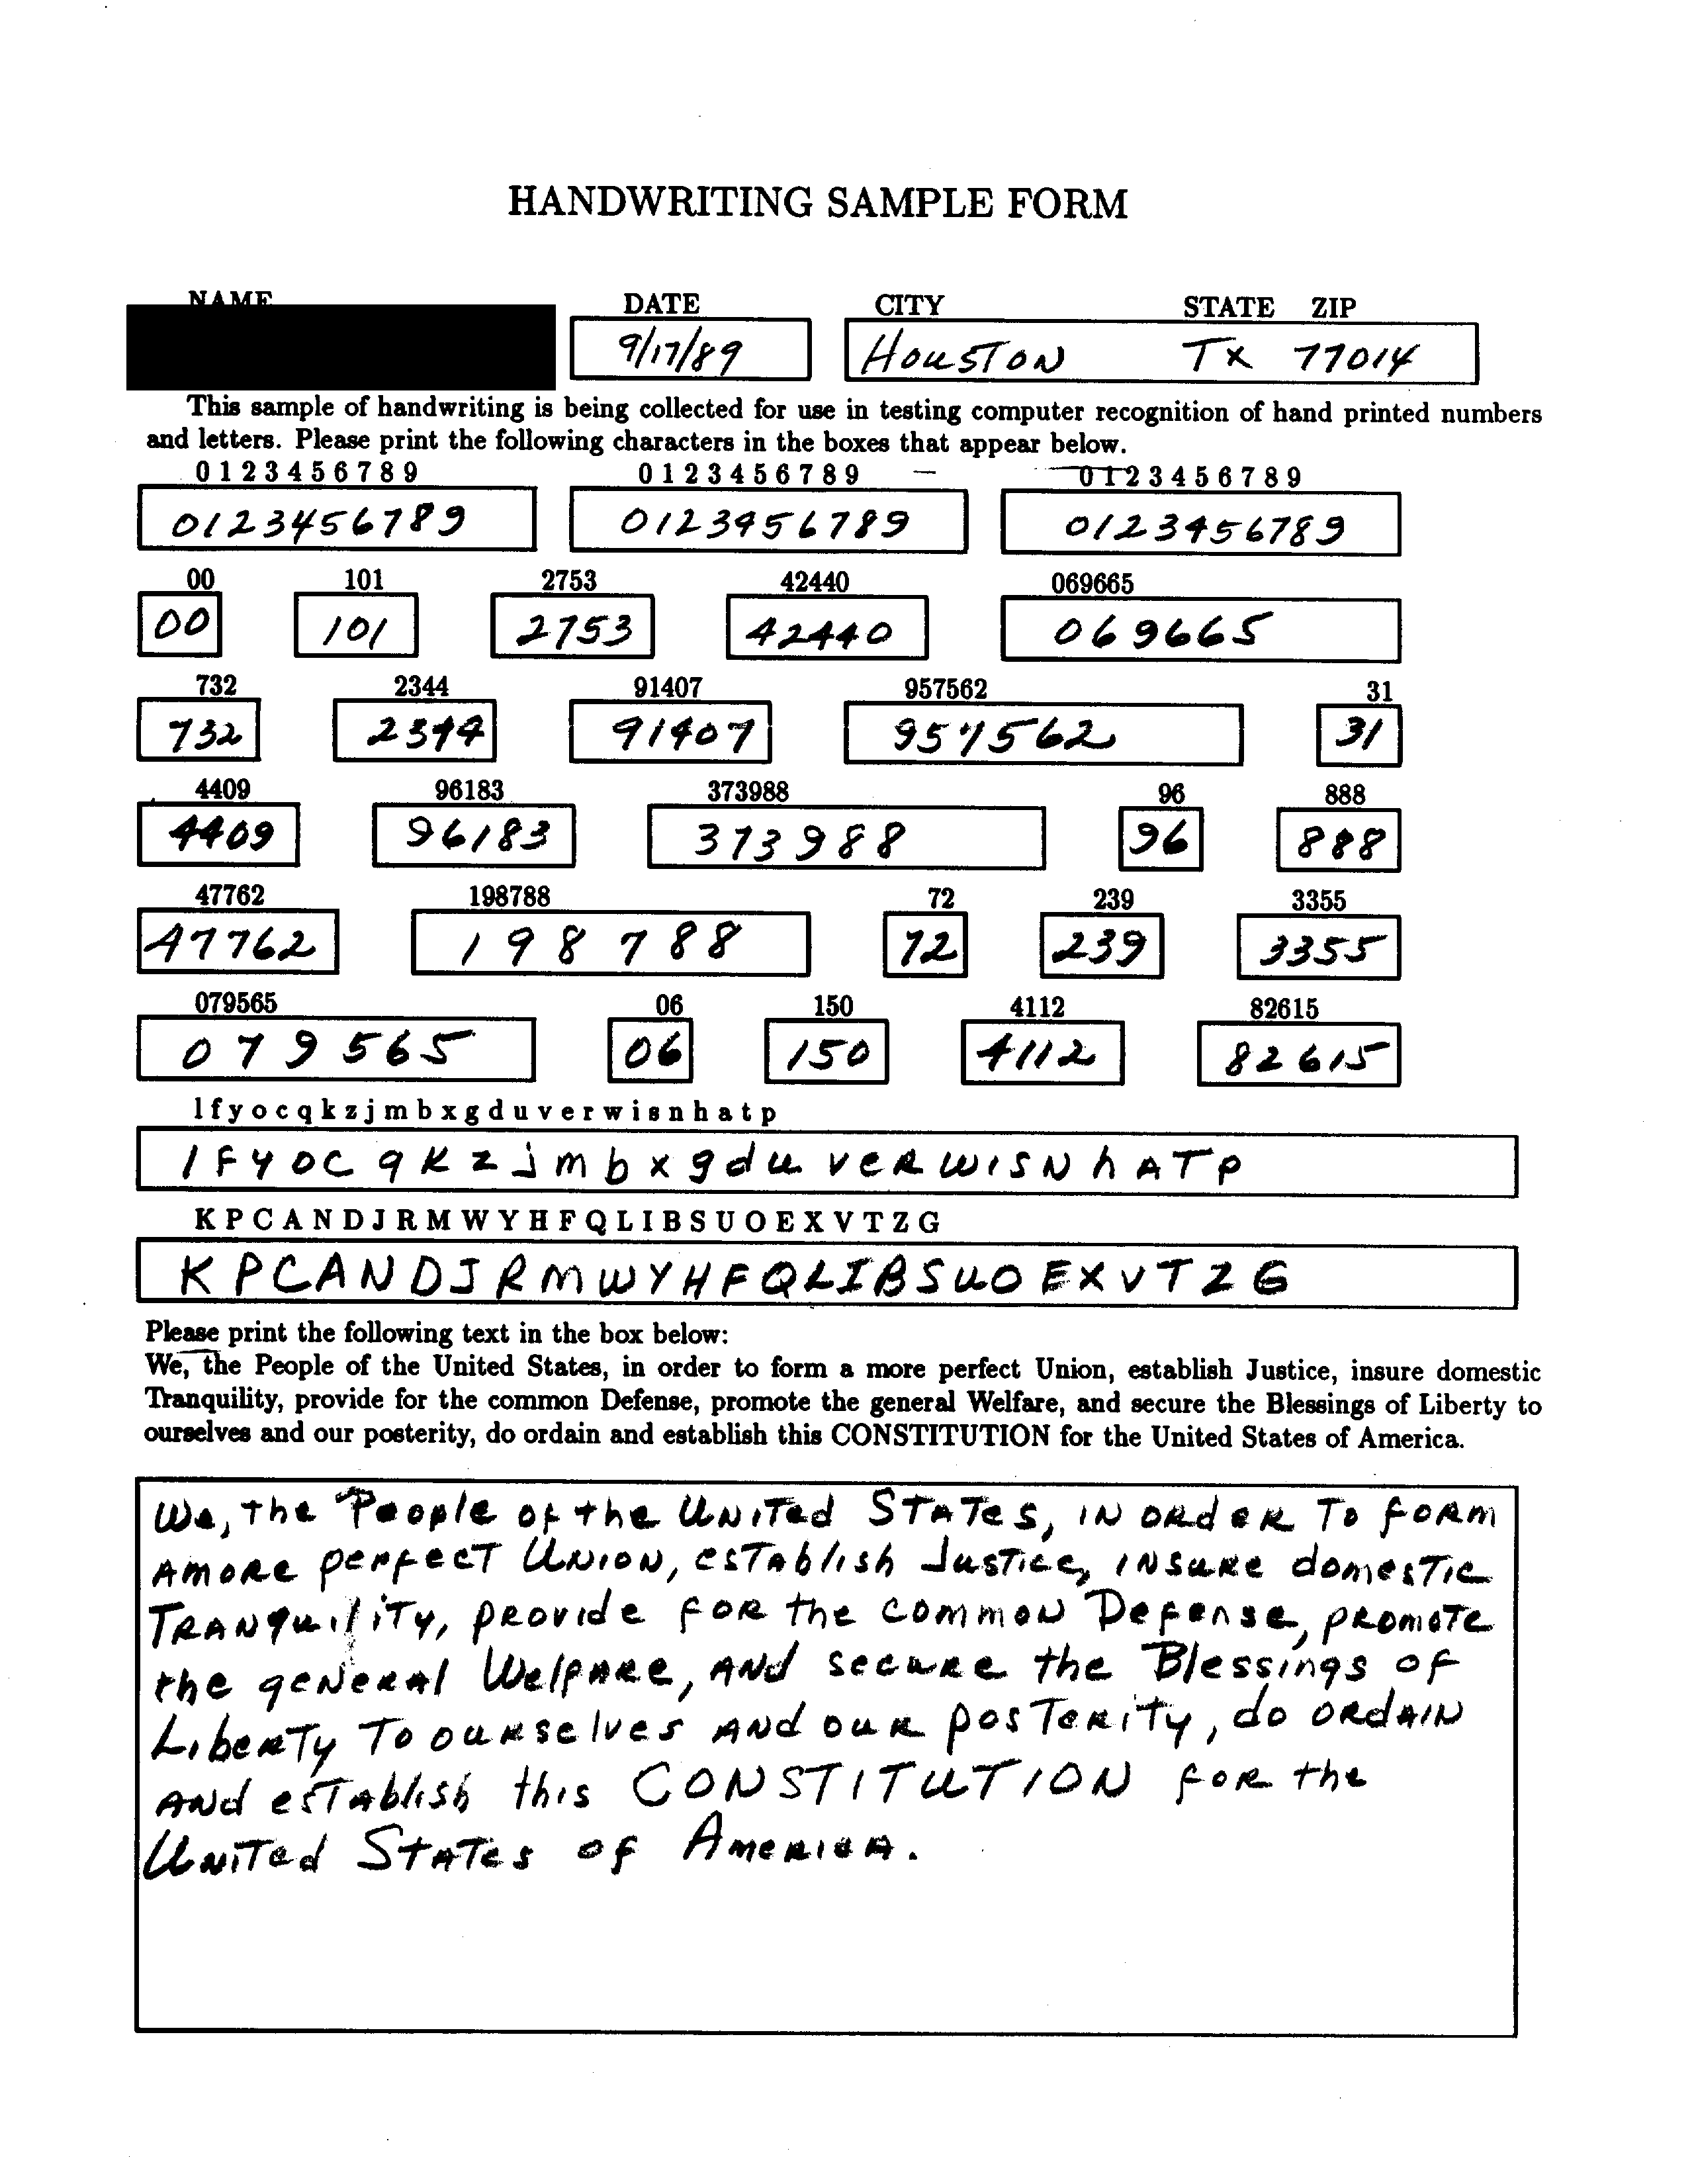 HANDWRITING SAMPLE FORM
NAME DATE CITY STATE ZIP
9/17/89 Houston TX 77014
This sample of handwriting is being collected for use in testing computer recognition of hand printed numbers
and letters. Please print the following characters in the boxes that appear below.
0 1 2 3 4 5 6 7 8 9 0 1 2 3 4 5 6 7 8 9 0 1 2 3 4 5 6 7 8 9
0123456789 0123456789 0123456789
00 101 2753 42440 069665
00 101 2753 42440 069665
732 2344 91407 957562 31
732 2344 91407 957562 31
4409 96183 373988 96 888
4409 96183 373988 96 888
47762 198788 72 239 3355
47762 198788 72 239 3355
079565 06 150 4112 82615
079565 06 150 4112 82615
l f y o c q k z j m b x g d u v e r w i s n h a t p
l F y O C q K z j m b x g d u v e R W I S N h A T p
K P C A N D J R M W Y H F Q L I B S U O E X V T Z G
K P C A N D J R M W Y H F Q L I B S U O E X V T Z G
Please print the following text in the box below:
We, the People of the United States, in order to form a more perfect Union, establish Justice, insure domestic
Tranquility, provide for the common Defense, promote the general Welfare, and secure the Blessings of Liberty to
ourselves and our posterity, do ordain and establish this CONSTITUTION for the United States of America.
We, the People of the United States, in order to form
a more perfect Union, establish Justice, insure domestic
Tranquility, provide for the common Defense, promote
the general Welfare, and secure the Blessings of
Liberty to ourselves and our posterity, do ordain
and establish this CONSTITUTION for the
United States of America.